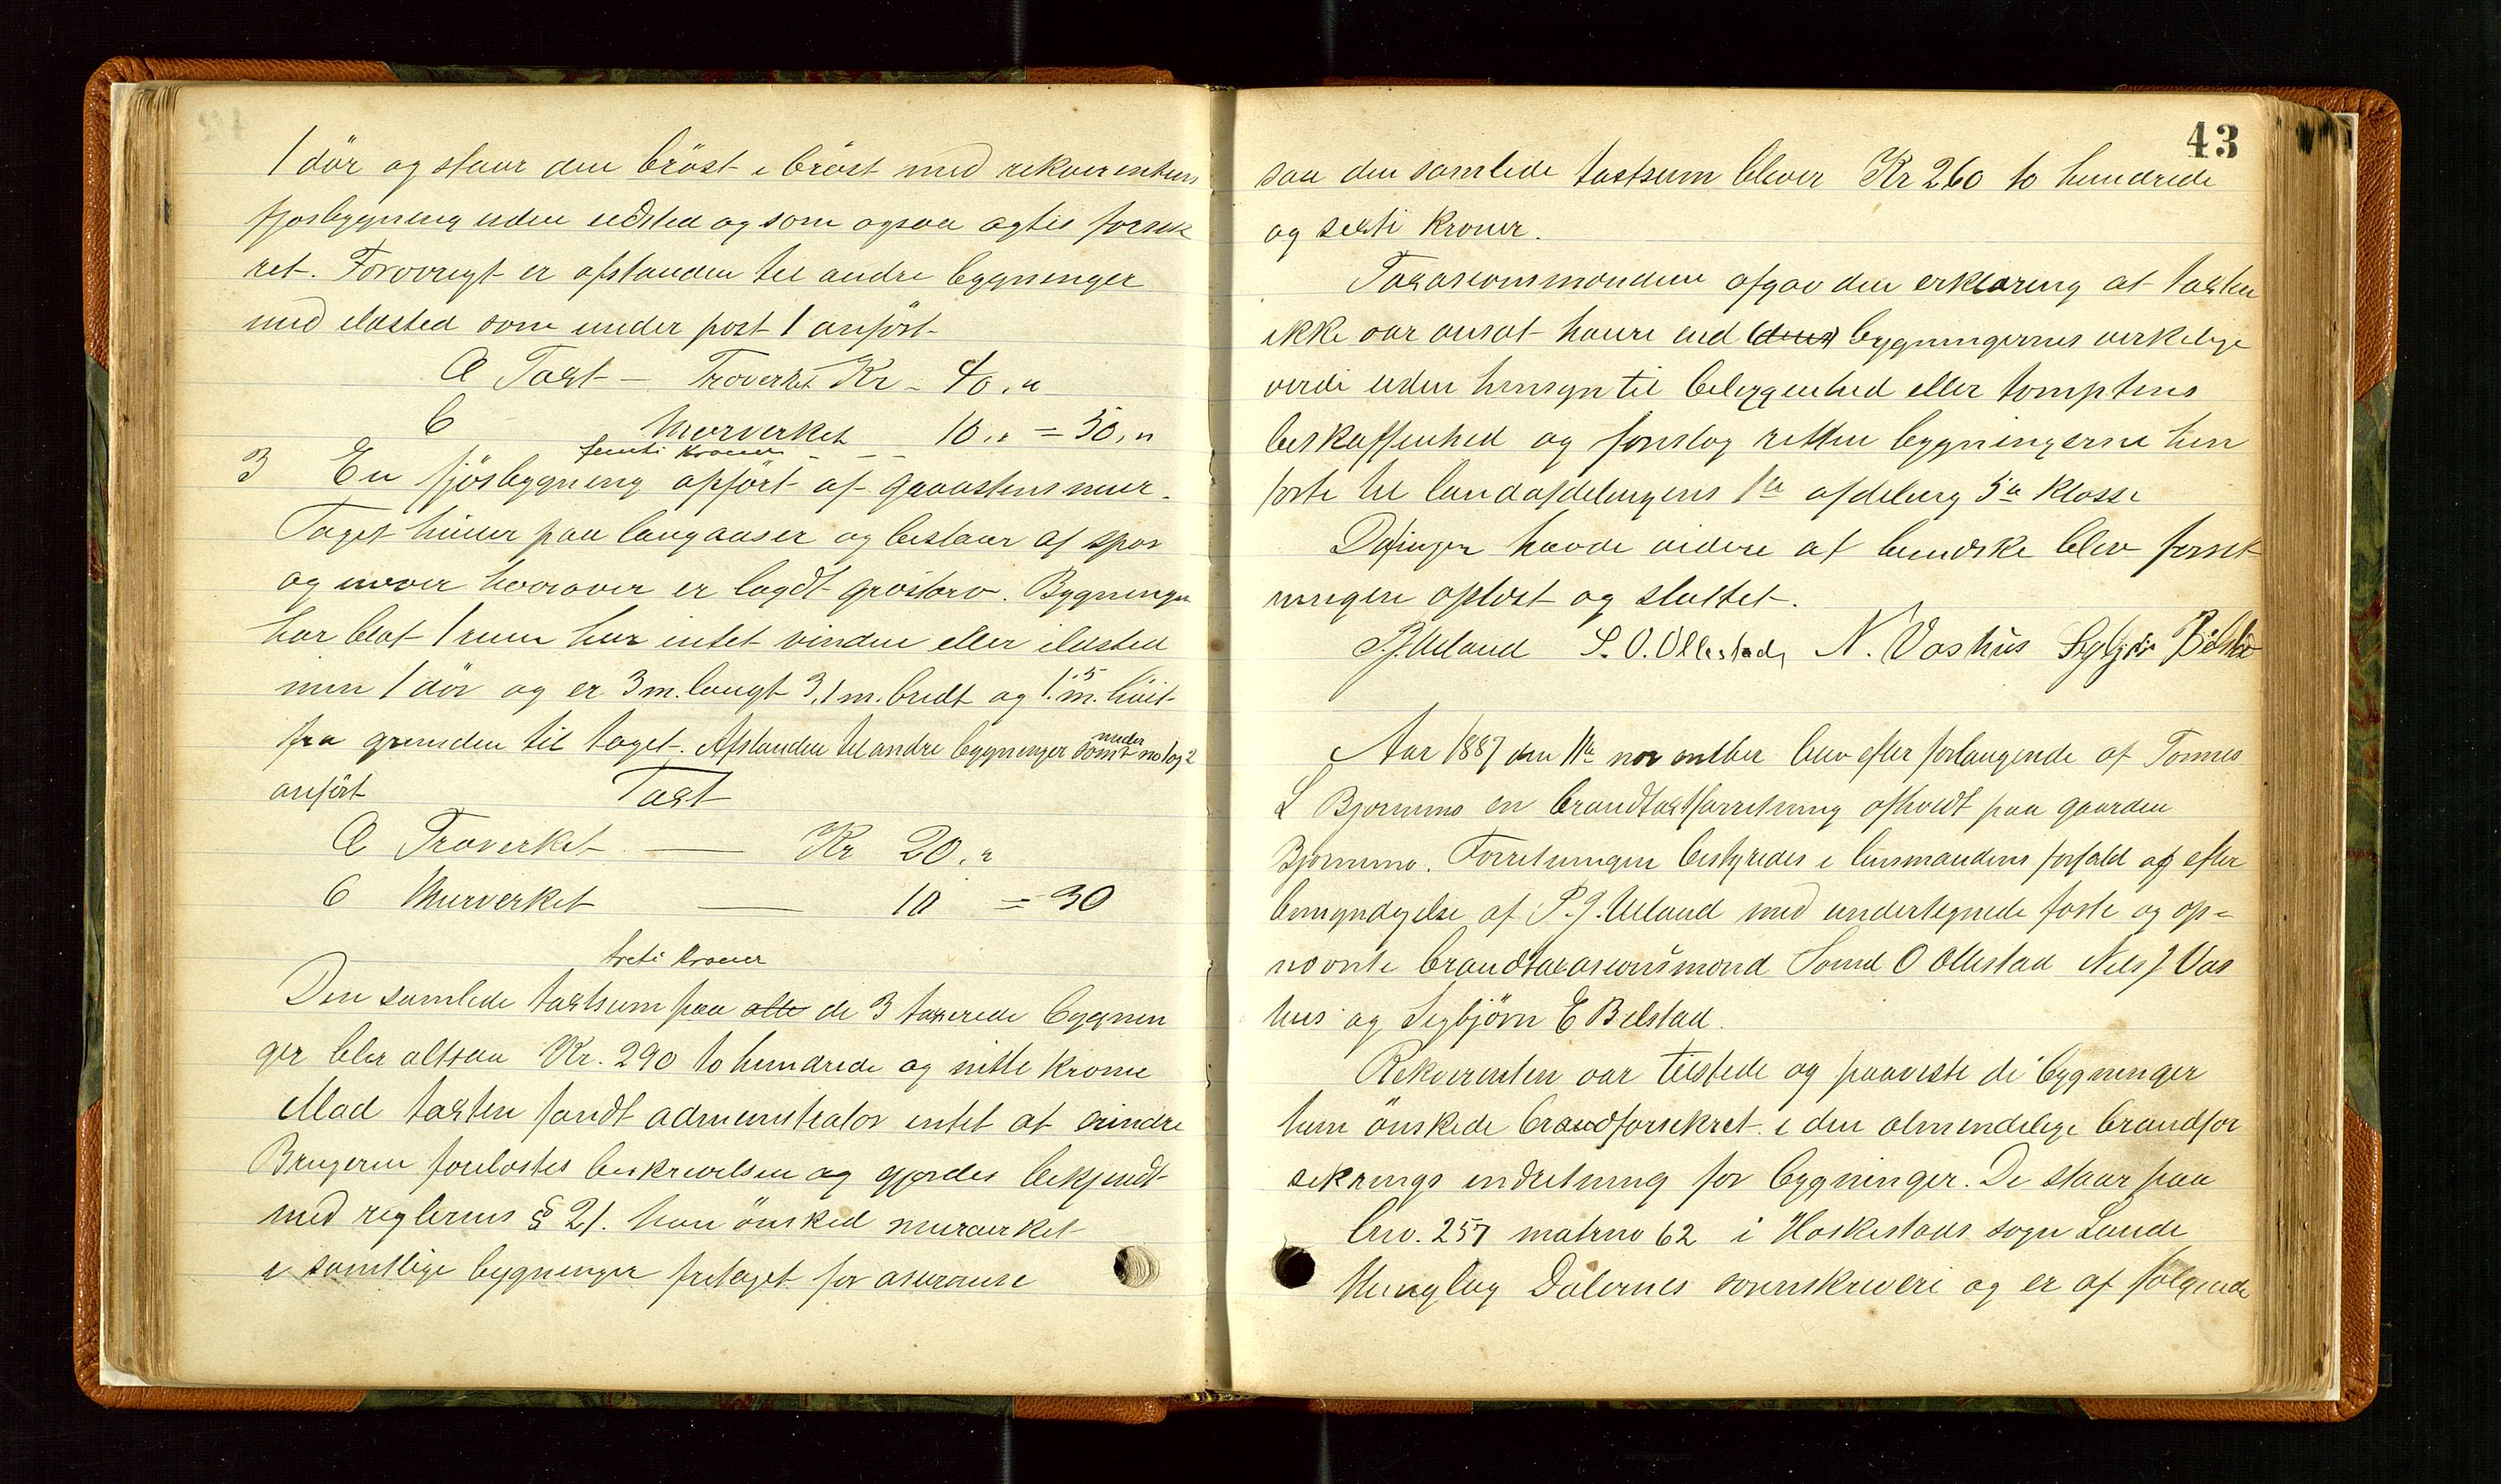 1 dör og staar den bröst i bröst med rekvirentens
fjøsbygning uden ildsted og som ogsaa agtes forsik
ret. Forøvrigt er afstanden til andre bygninger
med ildsted som under post 1 anført
a Taxt - Træverket Kr - 40.,
b Murverket 10., = 50.,
femti Kroner
3 En fjøsbygning opført af graastensmur.
Taget hviler paa langaaser og bestaar af spær
og næver hvorover er lagdt græstorv. Bygningen
har blot 1 rum har intet vindue eller ildsted
men 1 dör og er 3 m. langt 3,1 m. bredt og 1.5 m. höit
fra grunden til taget. Afstanden til andre bygninger som under no 1 og 2
anført Taxt
a Træverket — Kr 20.,
b Murverket — 10 = 30
treti Kroner
Den samlede taxtsum paa alle de 3 taxerede bygnin
ger bler altsaa Kr. 290 to hundrede og nitti krone
Mod taxten fandt administrator intet at erindre
Brugeren forelæstes beskrivelsen og gjordes bekjendt
med reglernes § 21. han ønsked murverket
i samtlige bygninger fritaget for asuranse
43
saa den samlede taxtsum bliver Kr 260 to hundrede
og sexti Kroner.
Taxasionsmændene afgav den erklæring at taxten
ikke var ansat høiere end (dens) bygningernes verkelige
værdi uden hensyn til beliggenhed eller tomptens
beskaffenhed og foreslog retten bygningerne hen
førte til landafdelingens 1te afdeling 5te klasse
Da ingen havde videre at bemærke blev forret
ningen opløst og sluttet.
P.J. Ueland S. O. Ollestad, N. Vashus Sigbjørn Bilstad
Aar 1887 den 11te november blev efter forlangende af Tønnes
L Bjørnemo en brandtaxtforretning afholdt paa gaarden
Bjørnemo. Forretningen bestyredes i lensmandens forfald og efter
bemyndigelse af P. J. Ueland med undertegnede faste og op=
nævnte brandtaxasionsmænd Søml O Ollestad Nils J Vas
hus og Sigbjørn E Belstad.
Rekvirenten var tilstede og paaviste de bygninger
ham ønskede brandforsikret i den almendelige brandfor
sikrings indretning for bygninger. De staar paa
brno. 257 matrno 62 i Heskestads sogn Lunde
thinglag Dalernes sorenskriveri og er af følgende